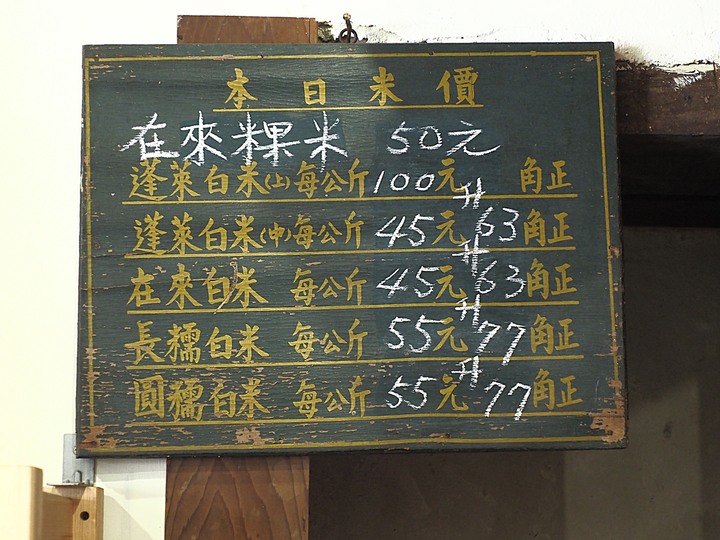 本日米價
在來粿米 50元
蓬萊白米(山)每公斤100元升 角正
蓬萊白米(中)每公斤45元升63角正
在來白米 每公斤45元升63角正
長糯白米 每公斤55元升77角正
圓糯白米 每公斤55元升77角正